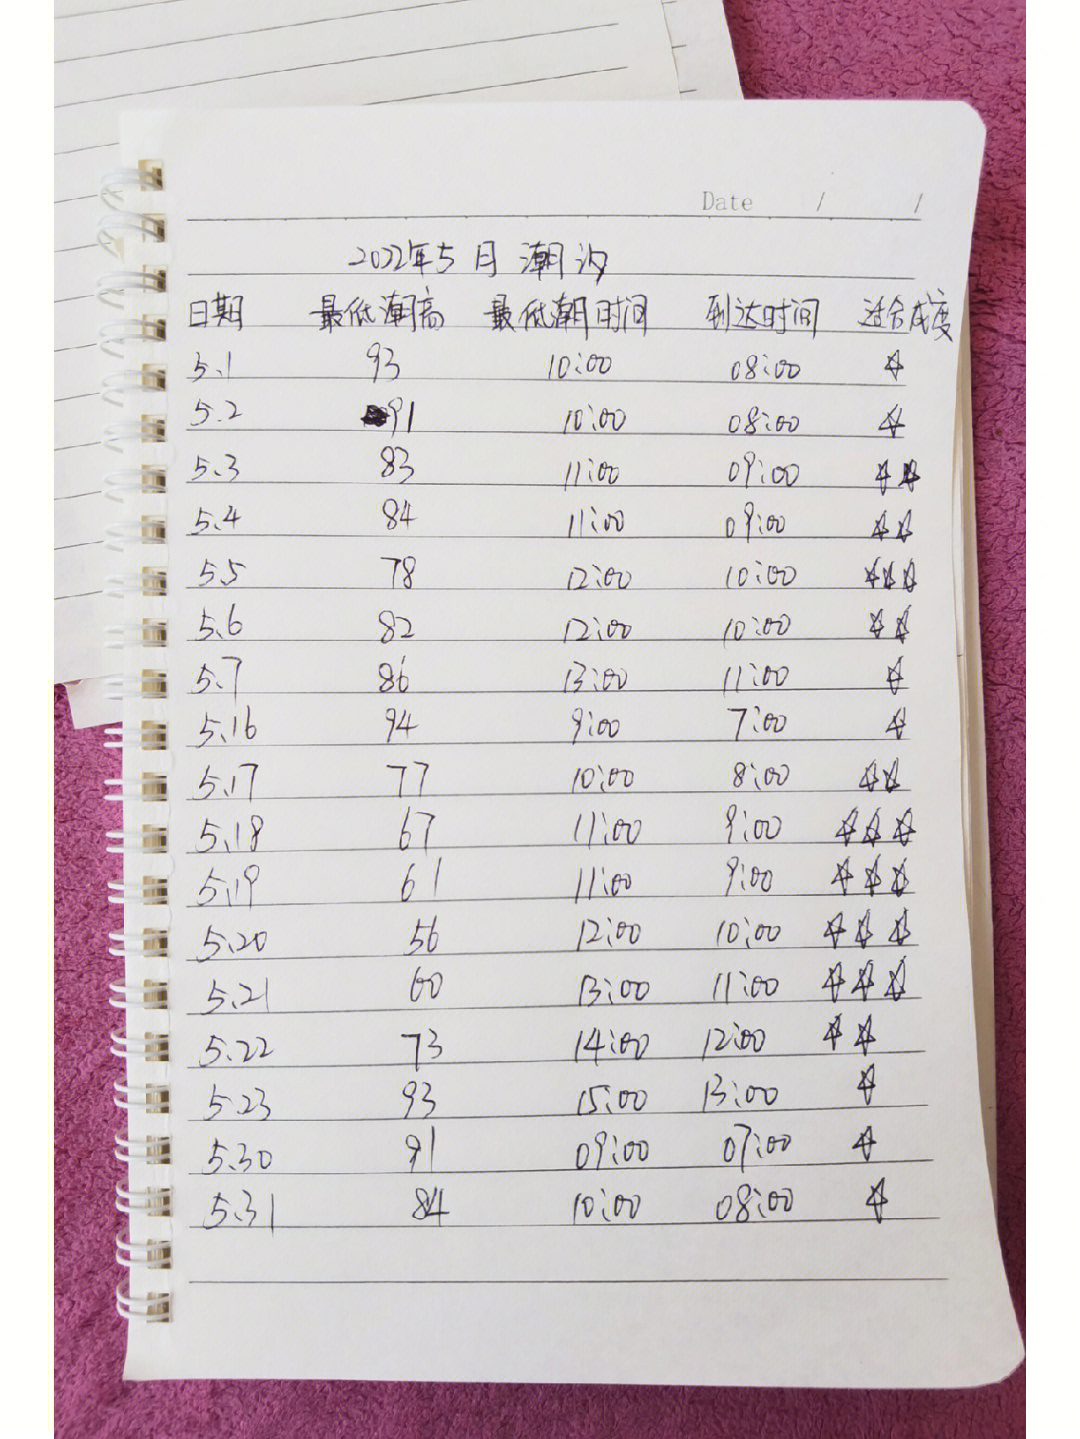 Date / /
2022年5月潮汐
日期 最低潮高 最低潮时间 到达时间 适合成度
5.1 93 10:00 08:00 ☆
5.2 91 10:00 08:00 ☆
5.3 83 11:00 09:00 ☆☆
5.4 84 11:00 09:00 ☆☆
5.5 78 12:00 10:00 ☆☆☆
5.6 82 12:00 10:00 ☆☆
5.7 86 13:00 11:00 ☆
5.16 94 9:00 7:00 ☆
5.17 77 10:00 8:00 ☆☆
5.18 67 11:00 9:00 ☆☆☆
5.19 61 11:00 9:00 ☆☆☆
5.20 56 12:00 10:00 ☆☆☆
5.21 60 13:00 11:00 ☆☆☆
5.22 73 14:00 12:00 ☆☆
5.23 93 15:00 13:00 ☆
5.30 91 09:00 07:00 ☆
5.31 84 10:00 08:00 ☆